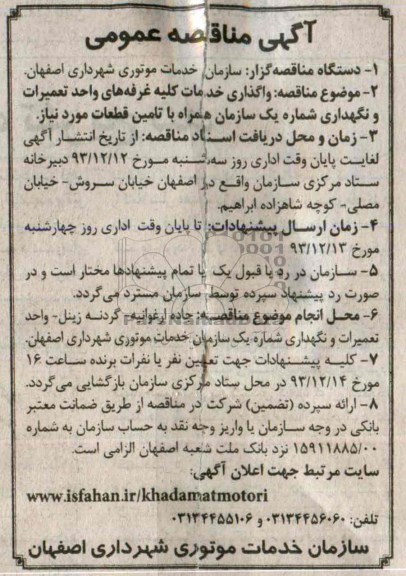 آگهی مناقصه عمومی
۱- دستگاه مناقصه‌گزار: سازمان خدمات موتوری شهرداری اصفهان.
۲- موضوع مناقصه: واگذاری خدمات کلیه غرفه‌های واحد تعمیرات
و نگهداری شماره یک سازمان همراه با تامین قطعات مورد نیاز.
۳- زمان و محل دریافت اسناد مناقصه: از تاریخ انتشار آگهی
لغایت پایان وقت اداری روز سه‌شنبه مورخ ۹۳/۱۲/۱۲ دبیرخانه
ستاد مرکزی سازمان واقع در اصفهان خیابان سروش- خیابان
مصلی- کوچه شاهزاده ابراهیم.
۴- زمان ارسال پیشنهادات: تا پایان وقت اداری روز چهارشنبه
مورخ ۹۳/۱۲/۱۳
۵- سازمان در رد یا قبول یک یا تمام پیشنهادها مختار است و در
صورت رد پیشنهاد سپرده توسط سازمان مسترد می‌گردد.
۶- محل انجام موضوع مناقصه: جاده ارغوانیه- گردنه زینل- واحد
تعمیرات و نگهداری شماره یک سازمان خدمات موتوری شهرداری اصفهان.
۷- کلیه پیشنهادات جهت تعیین نفر یا نفرات برنده ساعت ۱۶
مورخ ۹۳/۱۲/۱۴ در محل ستاد مرکزی سازمان بازگشایی می‌گردد.
۸- ارائه سپرده (تضمین) شرکت در مناقصه از طریق ضمانت معتبر
بانکی در وجه سازمان یا واریز وجه نقد به حساب سازمان به شماره
۱۵۹۱۱۸۸۵/۰۰ نزد بانک ملت شعبه اصفهان الزامی است.
سایت مرتبط جهت اعلان آگهی:
www.isfahan.ir/khadamatmotori
تلفن: ۰۳۱۳۴۴۵۶۰۶۰ و ۰۳۱۳۴۴۵۵۱۰۶
سازمان خدمات موتوری شهرداری اصفهان